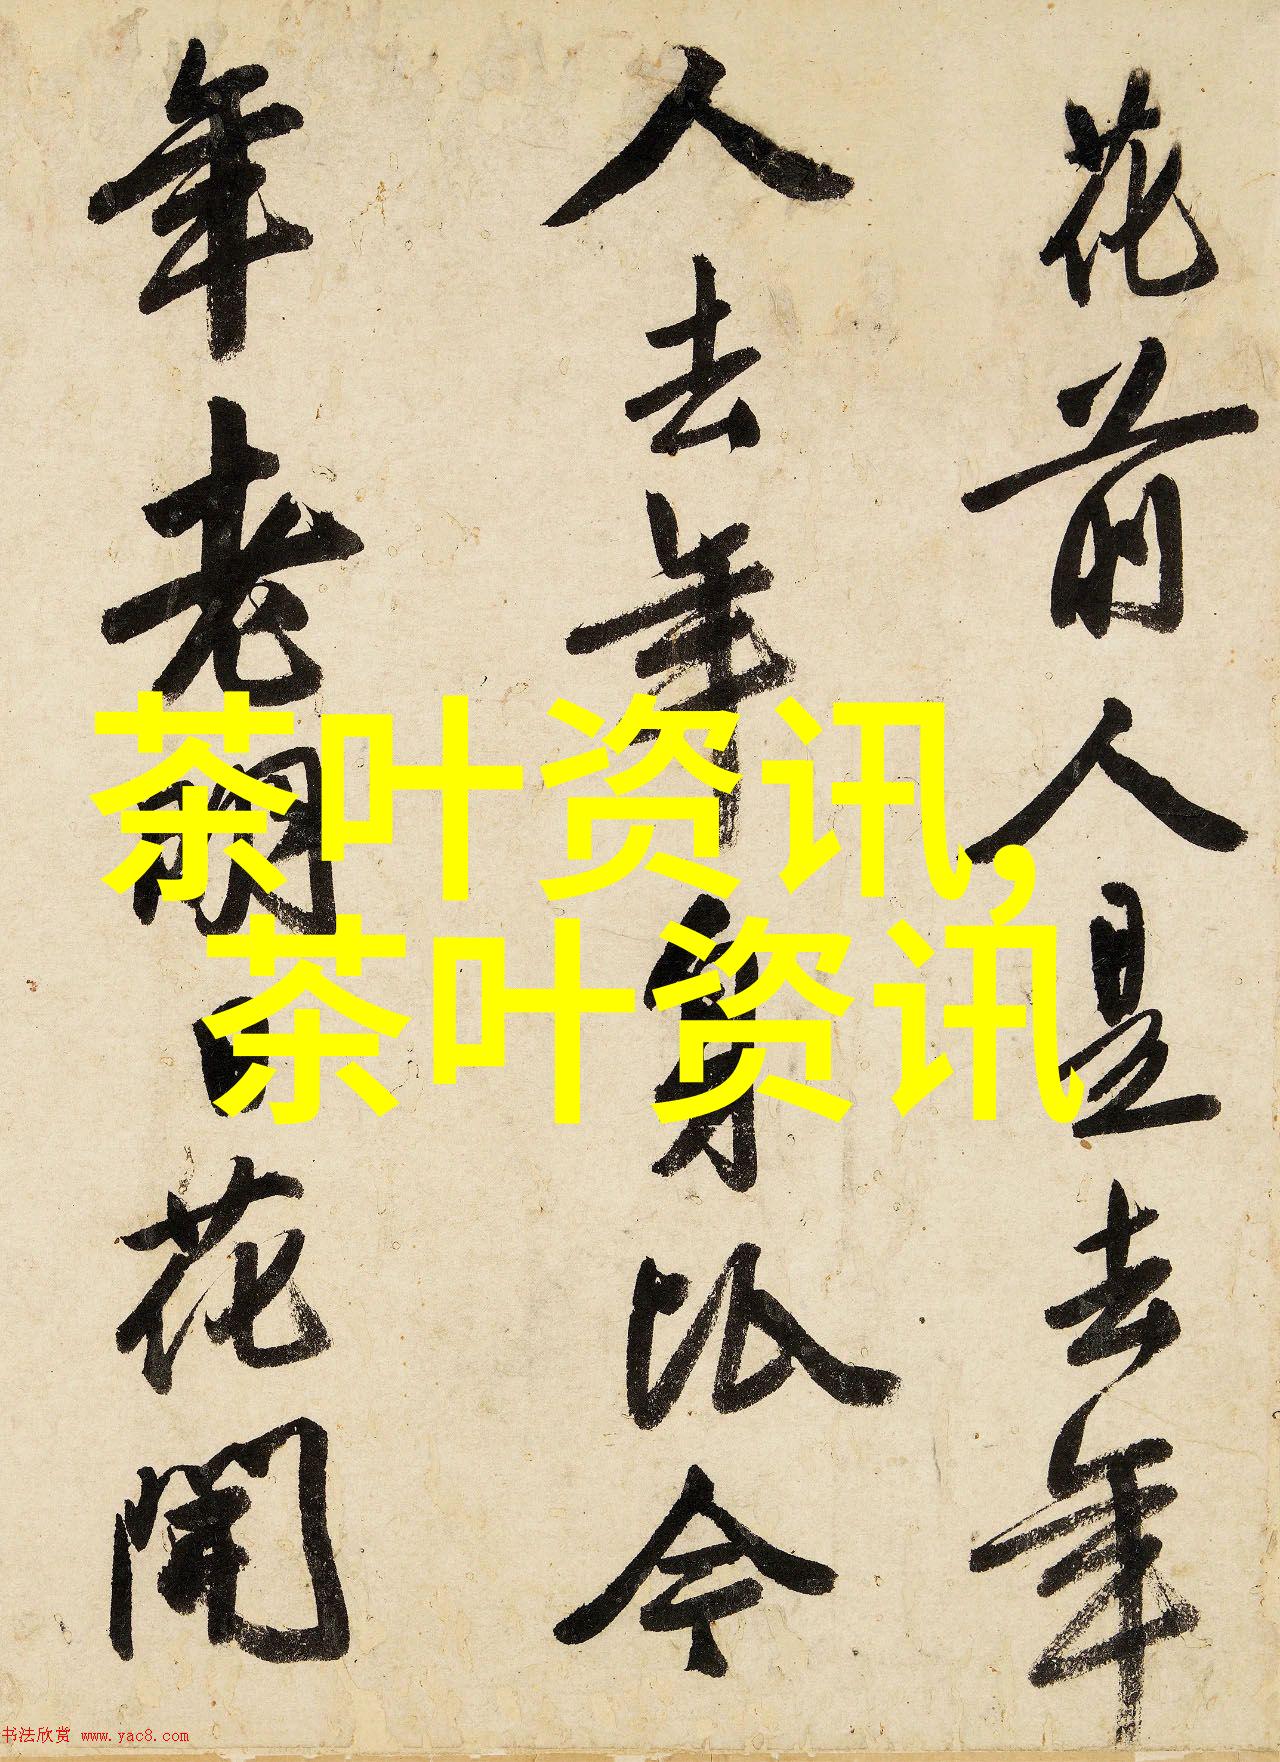 花前人是去年
人去年身比今
年老明日花開
茶叶资讯,
茶叶资讯
书法欣赏 www.yac8.com